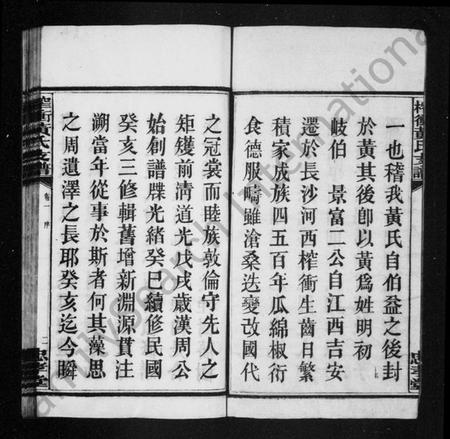 一也稽我黃氏自伯益之後封
於黃其後卽以黃爲姓明初
岐伯 景富二公自江西吉安
遷於長沙河西榨衝生齒日繁
積家成族四五百年瓜綿椒衍
食德服疇雖滄桑迭變改國代
之冠裳而睦族敦倫守先人之
矩矱前清道光戊戌歲漢周公
始創譜牒光緒癸巳續修民國
癸亥三修輯舊增新淵源貫注
溯當年從事於斯者何其藻思
之周遺澤之長耶癸亥迄今瞬
榨衝黃氏支譜
卷一 序
二
忠孝堂